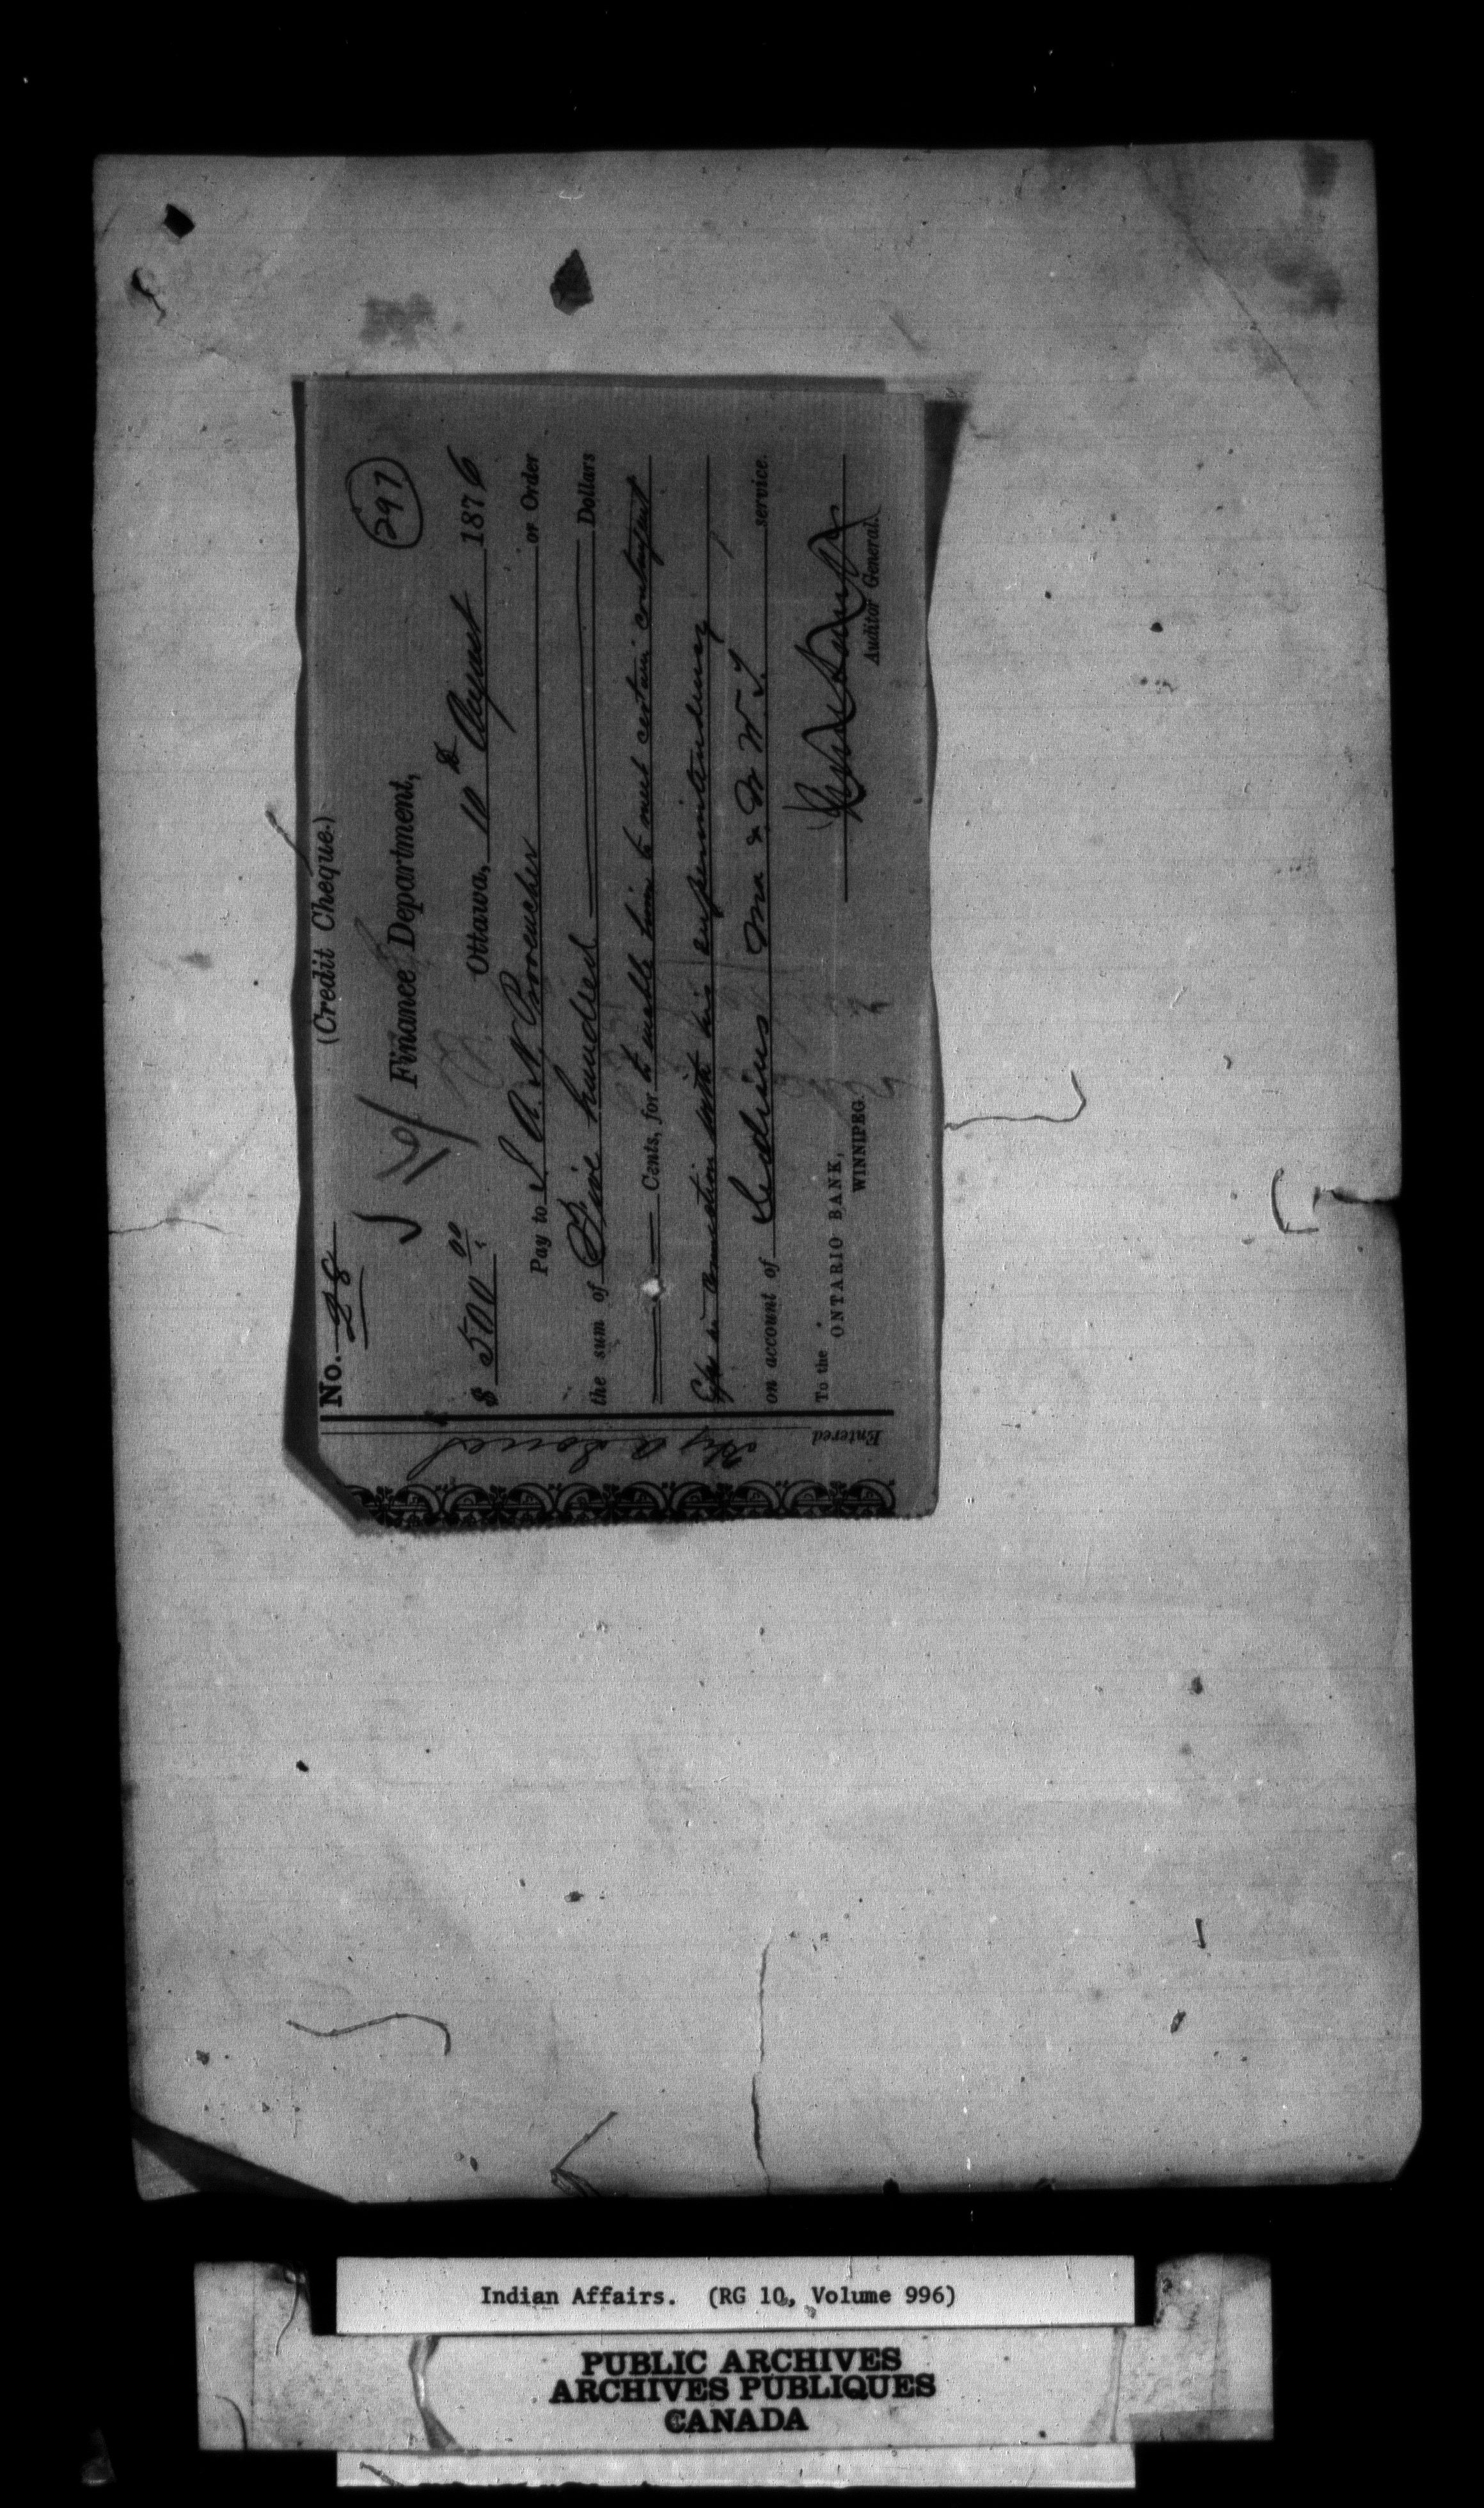 No. 28 (Credit Cheque.)
297
Finance Department,
$ 500 00 Ottawa, 10th August 1876
Pay to J. A. N. Provencher or Order
the sum of Five hundred Dollars
Cents, for to enable him to meet certain contingent
Exps in connection with his superintendency
on account of Indians Ma & N W. T. service.
To the ONTARIO BANK,
WINNIPEG.
Auditor General.
Entered
Indian Affairs. (RG 10, Volume 996)
PUBLIC ARCHIVES
ARCHIVES PUBLIQUES
CANADA